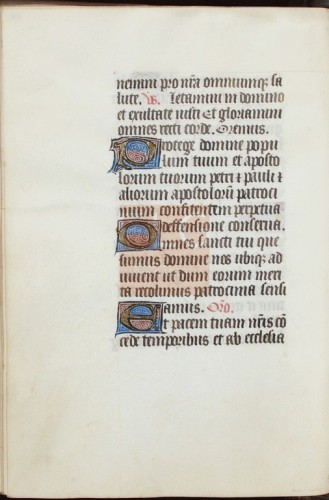 nemini pro nr̄a omniumq; sa
lute. ℣. Letamini in domino
et exultate iusti Et gloriamini
omnes recti corde. Oremus.
Protege domine popu
lum tuum et aposto
lorum tuorum petri ⁊ pauli ⁊
aliorum apostolorū patroci
nium confitentem perpetua
deffensione conserua.
Omnes sancti tui que
sumus domine nos ubiq; ad
iuuent ut dum eorum meri
ta recolimus patrocinia senti
amus. Orō.
Et pacem tuam nr̄is cō
cede temporibus et ab ecclesia